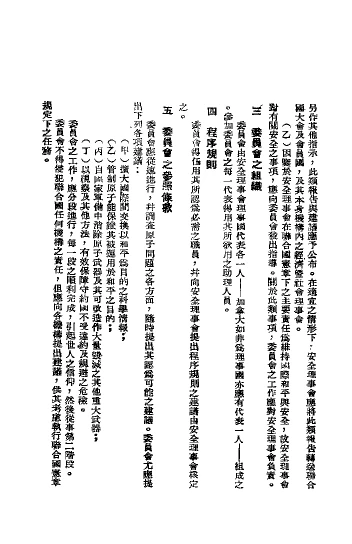 另作其他指示，此類報告與建議應予公布。在適宜之情形下，安全理事會應將此類報告轉送聯合
國大會及會員國，及其本身機構內之經濟暨社會理事會。
（乙）因鑒於安全理事會在聯合國憲章下之主要責任爲維持國際和平與安全，故安全理事會
對有關安全之事項，應向委員會發出指導。關於此類事項，委員會之工作應對安全理事會負責。
三　委員會之組織
委員會由安全理事會理事國代表各一人——加拿大如非爲理事國亦應有代表一人——組成之
。參加委員會之每一代表得用其所欲用之助理人員。
四　程序規則
委員會得任用其所認爲必需之職員，并向安全理事會提出程序規則之建議由安全理事會核定
之。
五　委員會之參照條款
委員會應從速進行，并調查原子問題之各方面，隨時提出其認爲可能之建議。委員會尤應提
出下列各項建議：
（甲）擴大國際間交換以和平爲目的之科學情報；
（乙）管制原子能保證其被應用於和平之目的；
（丙）由國家軍備中消除原子武器及其可致作大量毀滅之其他重大武器；
（丁）以視察及其他方法，有效保障守約國不受違約及規避之危險。
委員會之工作，應分段進行，每一段之順利完成，引起世人之信仰，然後從事第二階段。
委員會不得侵犯聯合國任何機構之責任，但應向各機構提出建議，俾其考慮執行聯合國憲章
規定下之任務。